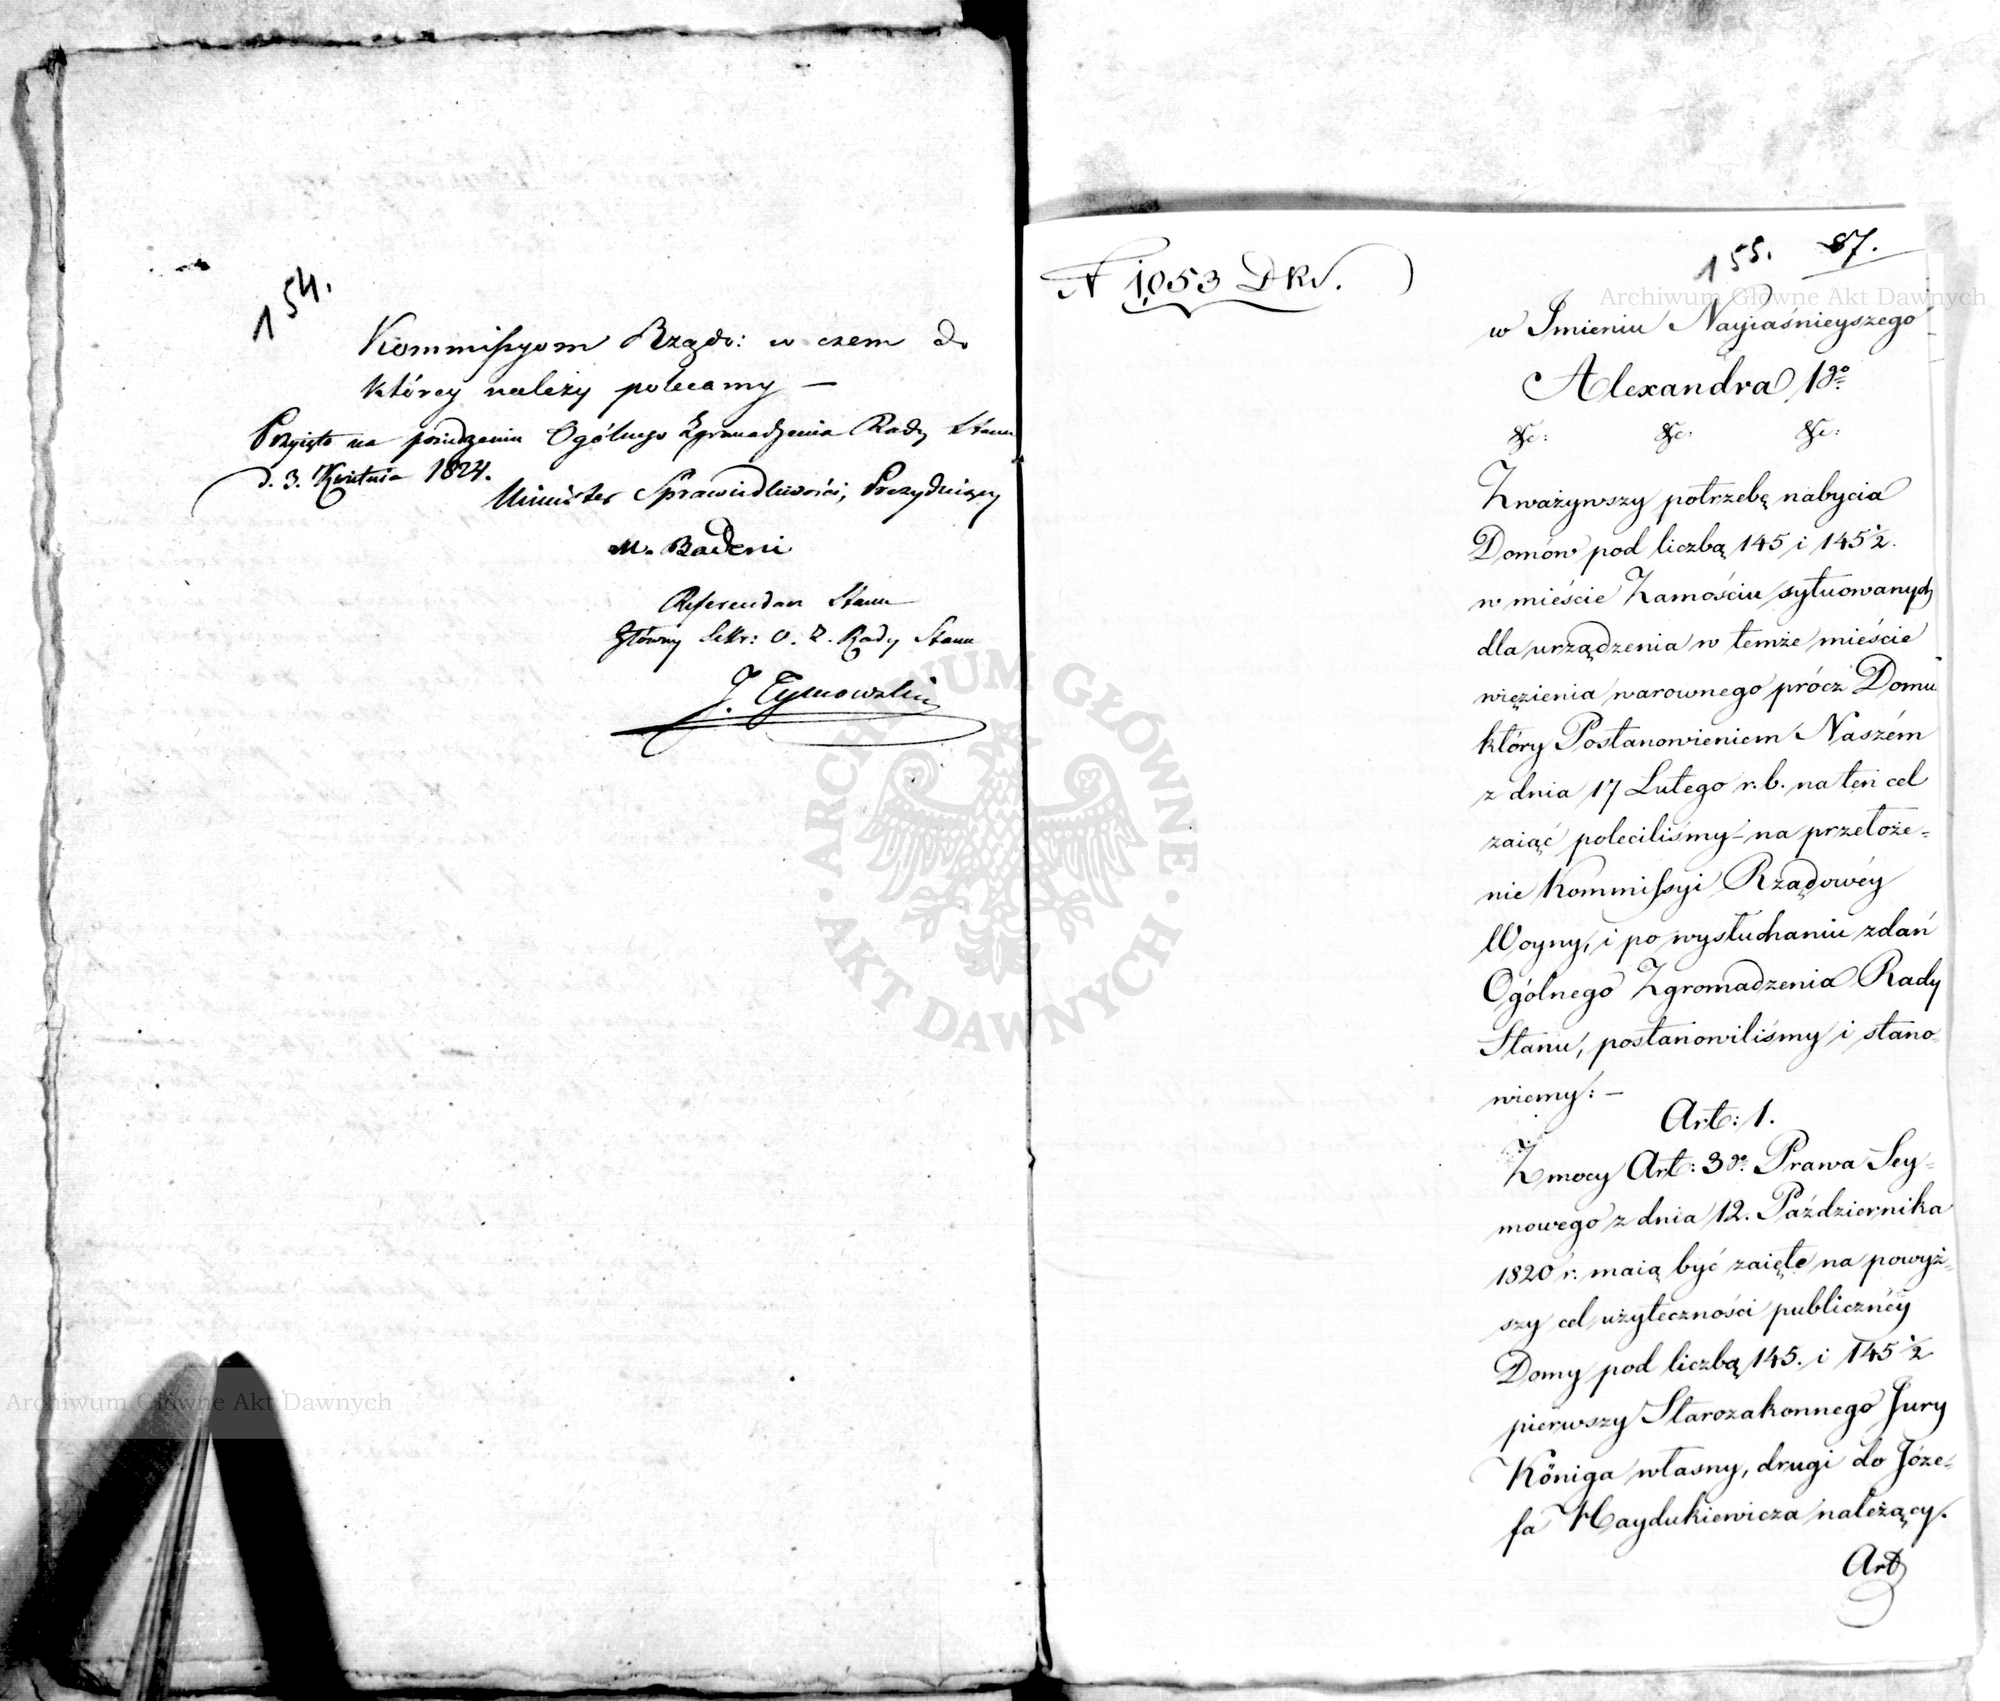 154.
Kommissyom Rządo: w czem do
którey należy polecamy —
Przyięto na posiedzeniu Ogólnego Zgromadzenia Rady Stanu
d. 3. Kwietnia 1824.
Minister Sprawiedliwości, Prezyduiący
M. Badeni
Referendarz Stanu
Główny Sekr: O. Z. Rady Stanu
J. Tymowski
N 1053 DKS.
155. 87.
w Imieniu Nayiaśnieyszego
Alexandra 1go
&c: &c: &c:
Zważywszy potrzebę nabycia
Domów pod liczbą 145 i 145½.
w mieście Zamościu sytuowanych
dla urządzenia w temże mieście
więzienia warownego prócz Domu
który Postanowieniem Naszém
z dnia 17 Lutego r. b. na ten cel
zaiąć poleciliśmy – na przełoże=
nie Kommissyi Rządowéy
Woyny, i po wysłuchaniu zdań
Ogólnego Zgromadzenia Rady
Stanu, postanowiliśmy i stano=
wiemy: —
Art: 1.
Z mocy Art: 3go Prawa Sey=
mowego z dnia 12. Października
1820 r. maią być zaięte na powyż=
szy cel użyteczności publicznéy
Domy pod liczbą 145. i 145½
pierwszy Starozakonnego Jury
Königa własny, drugi do Józe=
fa Haydukiewicza należący.
Art
Archiwum Główne Akt Dawnych
Archiwum Główne Akt Dawnych
ARCHIWUM GŁÓWNE · AKT DAWNYCH ·